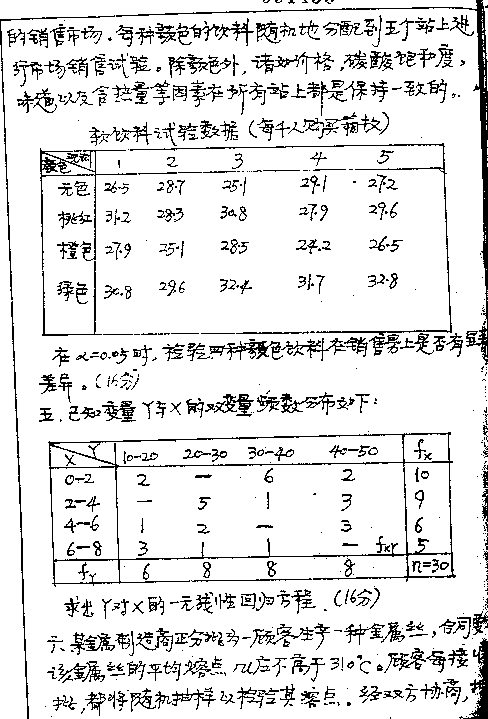 的销售市场。每种颜色的饮料随机地分配到五个站上进
行市场销售试验。除颜色外,诸如价格,碳酸饱和度,
味道以及含热量等因素在所有站上都是保持一致的。
软饮料试验数据(每千人购买箱数)
颜色 1 2 3 4 5
无色 26.5 28.7 25.1 29.1 27.2
桃红 31.2 28.3 30.8 27.9 29.6
橙色 27.9 25.1 28.5 24.2 26.5
绿色 30.8 29.6 32.4 31.7 32.8
在α=0.05时,检验四种颜色饮料在销售量上是否有显著
差异。(16分)
五.已知变量Y与X的双变量频数分布如下:
X Y 10-20 20-30 30-40 40-50 fx
0-2 2 — 6 2 10
2-4 — 5 1 3 9
4-6 1 2 — 3 6
6-8 3 1 1 — fxy 5
fY 6 8 8 8 n=30
求出Y对X的一元线性回归方程.(16分)
六.某金属制造商正分批为一顾客生产一种金属丝,合同要
该金属丝的平均熔点 应不高于310℃。顾客每接收
批,都将随机抽样以检验其熔点.经双方协商,